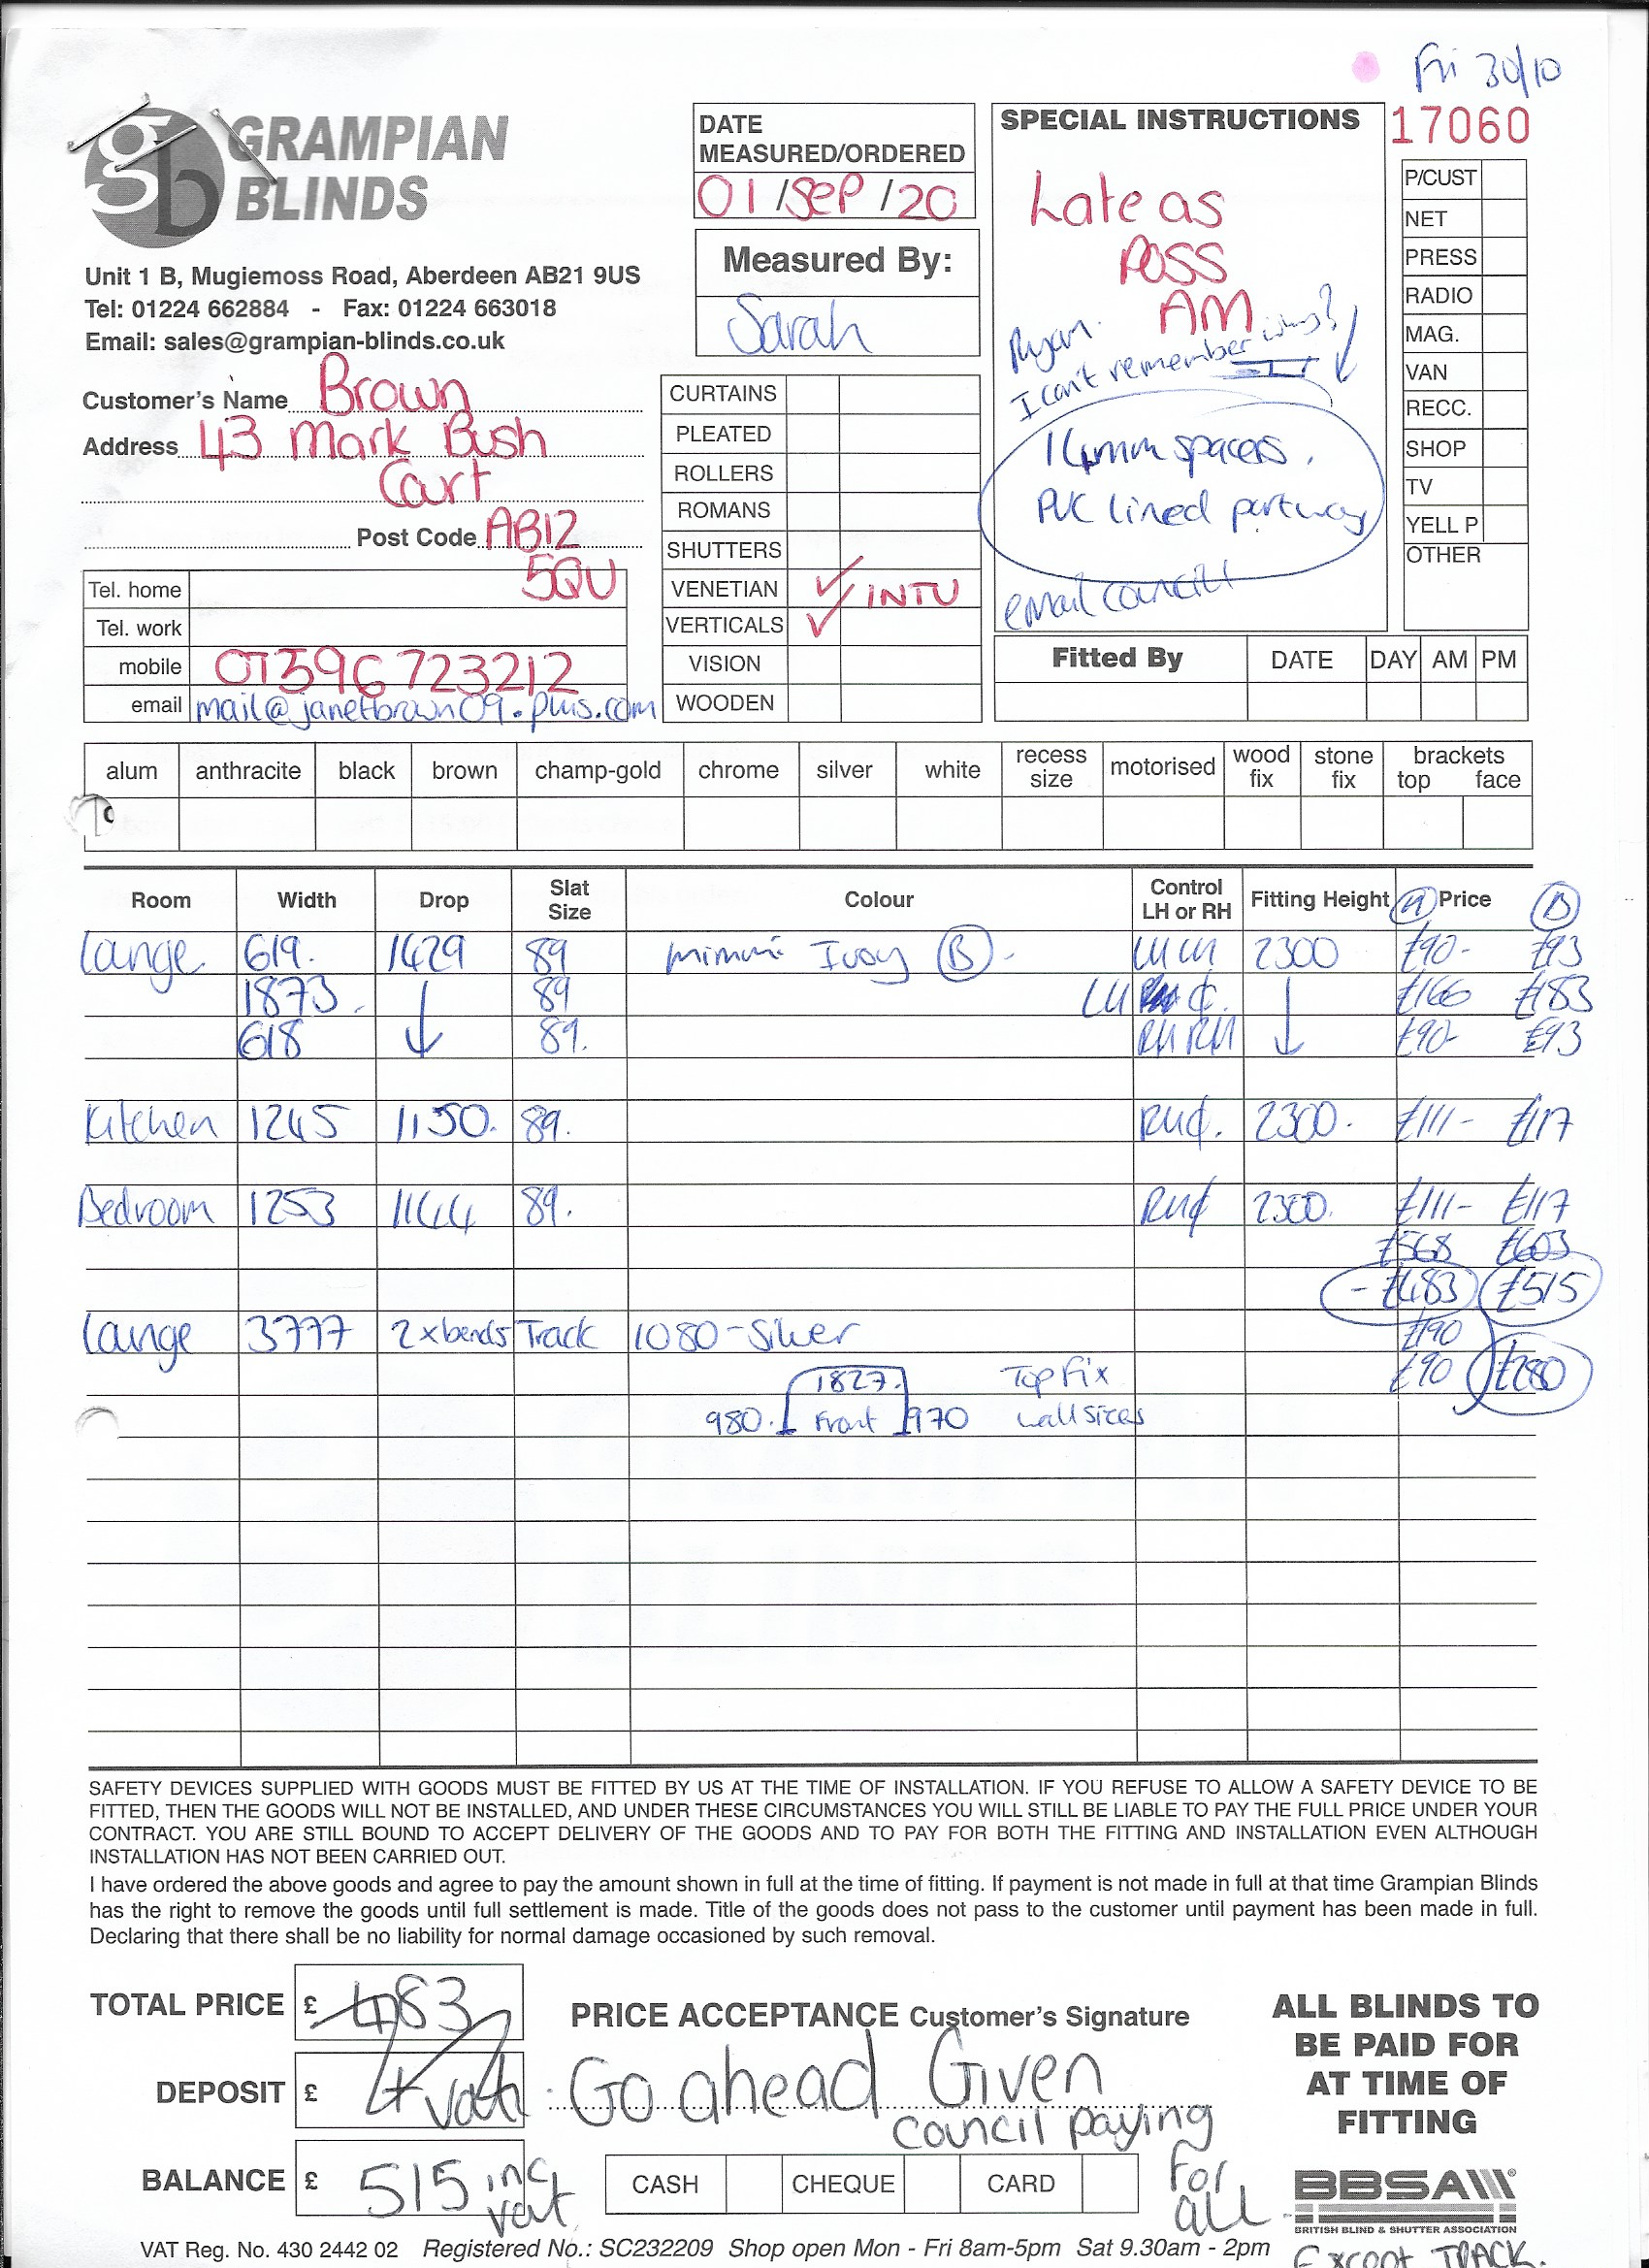 Fri 30/10
17060
GRAMPIAN
BLINDS
Unit 1 B, Mugiemoss Road, Aberdeen AB21 9US
Tel: 01224 662884 - Fax: 01224 663018
Email: sales@grampian-blinds.co.uk
DATE
MEASURED/ORDERED
01/SEP/20
Measured By:
Sarah
SPECIAL INSTRUCTIONS
Late as
POSS
AM
Ryan.
I can't remember why?
14mm spacers.
PVC lined partway
email council
P/CUST
NET
PRESS
RADIO
MAG.
VAN
RECC.
SHOP
TV
YELL P
OTHER
Customer's Name Brown
Address 43 Mark Bush
Court
Post Code AB12
5QU
Tel. home
Tel. work
mobile 07596 723212
email mail@janetbrown09.plus.com
CURTAINS
PLEATED
ROLLERS
ROMANS
SHUTTERS
VENETIAN ✓ INTU
VERTICALS ✓
VISION
WOODEN
Fitted By DATE DAY AM PM
alum anthracite black brown champ-gold chrome silver white recess size motorised wood fix stone fix brackets top face
Room Width Drop Slat Size Colour Control LH or RH Fitting Height Price
Lounge 619. 1429 89 Ivory (B) LH LH 2300 £90- £93
1873. ↓ 89 LH ¢. ↓ £166 £183
618 89. RH RH £90- £93
Kitchen 1245 1150. 89. RH¢. 2300. £111- £117
Bedroom 1253 1144 89. RH¢ 2300. £111- £117
£568 £603
- £483 £515
Lounge 3777 2 x bends Track 1080-Silver £190
1827. Top Fix £90 £280
980. Front 970 wall sizes
SAFETY DEVICES SUPPLIED WITH GOODS MUST BE FITTED BY US AT THE TIME OF INSTALLATION. IF YOU REFUSE TO ALLOW A SAFETY DEVICE TO BE
FITTED, THEN THE GOODS WILL NOT BE INSTALLED, AND UNDER THESE CIRCUMSTANCES YOU WILL STILL BE LIABLE TO PAY THE FULL PRICE UNDER YOUR
CONTRACT. YOU ARE STILL BOUND TO ACCEPT DELIVERY OF THE GOODS AND TO PAY FOR BOTH THE FITTING AND INSTALLATION EVEN ALTHOUGH
INSTALLATION HAS NOT BEEN CARRIED OUT.
I have ordered the above goods and agree to pay the amount shown in full at the time of fitting. If payment is not made in full at that time Grampian Blinds
has the right to remove the goods until full settlement is made. Title of the goods does not pass to the customer until payment has been made in full.
Declaring that there shall be no liability for normal damage occasioned by such removal.
TOTAL PRICE £ 483
DEPOSIT £ + vat
BALANCE £ 515 inc vat
PRICE ACCEPTANCE Customer's Signature
Go ahead Given
council paying
For
all
CASH CHEQUE CARD
ALL BLINDS TO
BE PAID FOR
AT TIME OF
FITTING
BBSA
BRITISH BLIND & SHUTTER ASSOCIATION
VAT Reg. No. 430 2442 02 Registered No.: SC232209 Shop open Mon - Fri 8am-5pm Sat 9.30am - 2pm
Except TRACK.